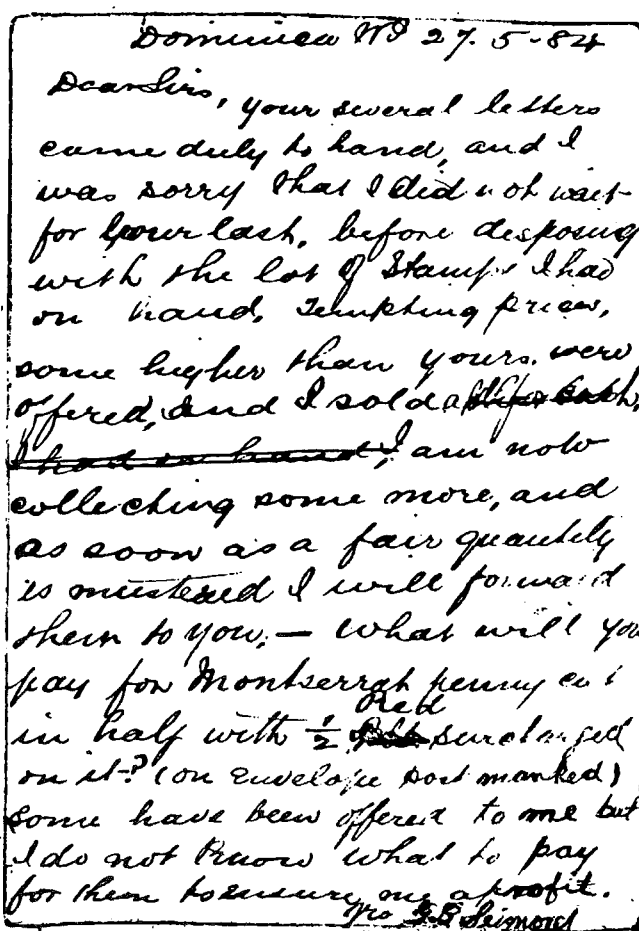 Dominica WI 27.5-84
Dear Sirs,
your several letters
came duly to hand, and I
was sorry that I did not wait
for your last, before disposing
with the lot of Stamps I had
on hand. Tempting prices,
some higher than yours. were
offered, and I sold all for cash.
I had in hand, I am now
collecting some more, and
as soon as a fair quantity
is mustered I will forward
them to you. — What will you
pay for Montserrat penny cut
Red
in half with ½ surcharged
on it? (on Envelope post marked)
some have been offered to me but
I do not know what to pay
for them to ensure me a profit.